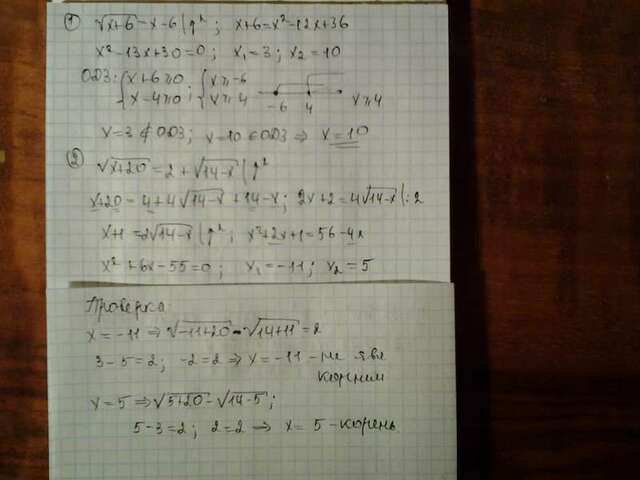 ① √x+6 = x-6 |↑²; x+6=x²-12x+36
x²-13x+30=0; x₁=3; x₂=10
ОДЗ: { x+6≥0 ; { x≥-6
{ x-4≥0 ; { x≥4 -6 4 x≥4
x=3 ∉ ОДЗ; x=10 ∈ ОДЗ ⇒ x=10
② √x+20 = 2+√14-x |↑²
x+20=4+4√14-x+14-x; 2x+2=4√14-x |:2
x+1=2√14-x |↑²; x²+2x+1=56-4x
x²+6x-55=0; x₁=-11; x₂=5
Проверка:
x=-11 ⇒ √-11+20 - √14+11 = 2
3-5=2; -2=2 ⇒ x=-11 - не явл
корнем
x=5 ⇒ √5+20 - √14-5;
5-3=2; 2=2 → x=5 - корень